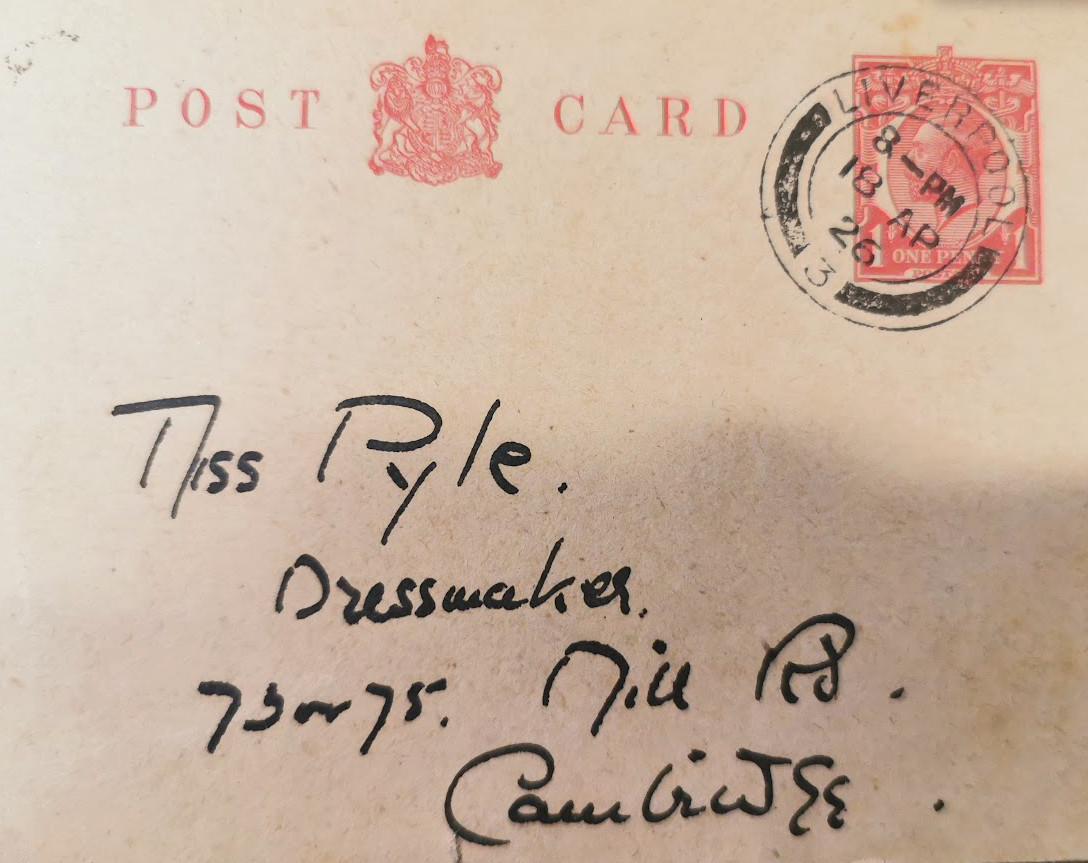 POST CARD
LIVERPOOL
8-PM
18 AP
26
3
1 ONE PENNY 1
Miss Pyle.
Dressmaker.
73 or 75. Mill Rd.
Cambridge.